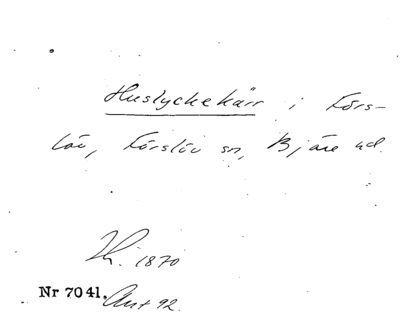 Huslyckekärr i Förs-
löv, Förslöv sn, Bjäre hd.
Th. 1870
Nr 7041. Ant 92.